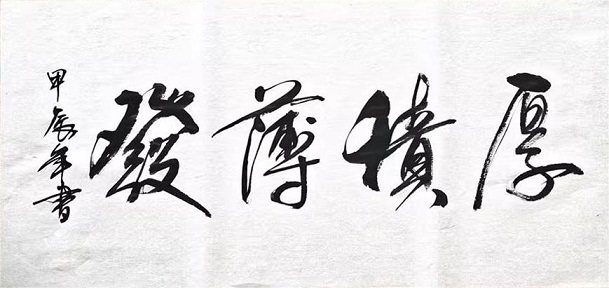 厚積薄發
甲辰年書